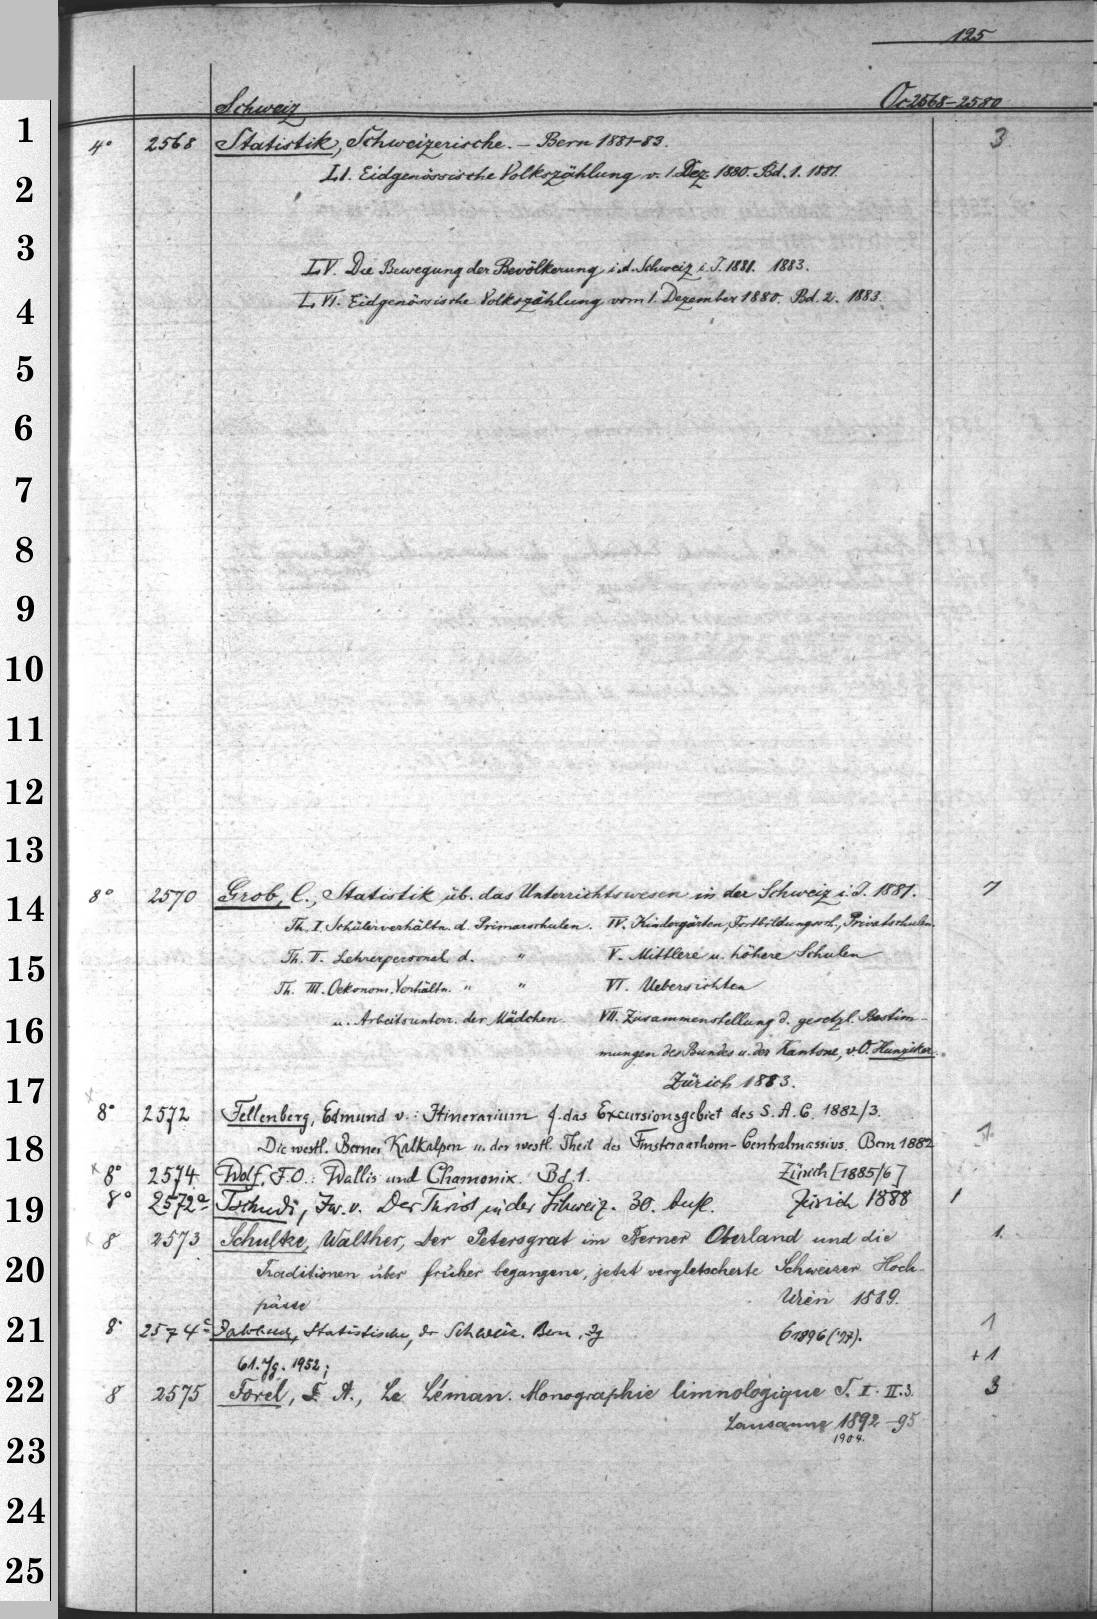 125
Schweiz Oc 2568-2580
1
4° 2568 Statistik, Schweizerische. – Bern 1881-83. 3
2
L I. Eidgenössische Volkszählung v. 1. Dez. 1880. Bd. 1. 1881.
3
L V. Die Bewegung der Bevölkerung i. d. Schweiz i. J. 1881. 1883.
4
L VI. Eidgenössische Volkszählung vom 1. Dezember 1880. Bd. 2. 1883.
5
6
7
8
9
10
11
12
13
14
8° 2570 Grob, C., Statistik üb. das Unterrichtswesen in der Schweiz i. J. 1881. 7
Th. I. Schülerverhältn. d. Primarschulen. IV. Kindergärten, Fortbildungssch., Privatschulen.
15
Th. II. Lehrerpersonel d. " V. Mittlere u. höhere Schulen
Th. III. Oekonom. Verhältn. " " VI. Uebersichten
16
u. Arbeitsunterr. der Mädchen VII. Zusammenstellung d. gesetzl. Bestim-
mungen des Bundes u. der Kantone, v. O. Hunziker.
17
Zürich 1883.
x 8° 2572 Fellenberg, Edmund v.: Itinerarium f. das Excursionsgebiet des S. A. C. 1882/3.
18
Die westl. Berner Kalkalpen u. der westl. Theil des Finsteraarhorn-Centralmassivs. Bern 1882 1.
x 8° 2574 Wolf, F. O.: Wallis und Chamonix. Bd. 1. Zürich [1885/6]
19
8° 2572a Tschudi, Iw. v. Der Turist in der Schweiz. 30. Aufl. Zürich 1888 1
x 8 2573 Schultze, Walther, Der Petersgrat im Berner Oberland und die 1.
20
Traditionen über früher begangene, jetzt vergletscherte Schweizer Hoch-
pässe Wien 1889.
21
8° 2574c Jahrbuch, Statistisches, der Schweiz. Bern. Jg 6 1896 ('97). 1
61. Jg. 1952; +1
22
8 2575 Forel, F. A., Le Léman. Monographie limnologique T. I. II. 3. 3
23
Lausanne 1892-95
1904.
24
25